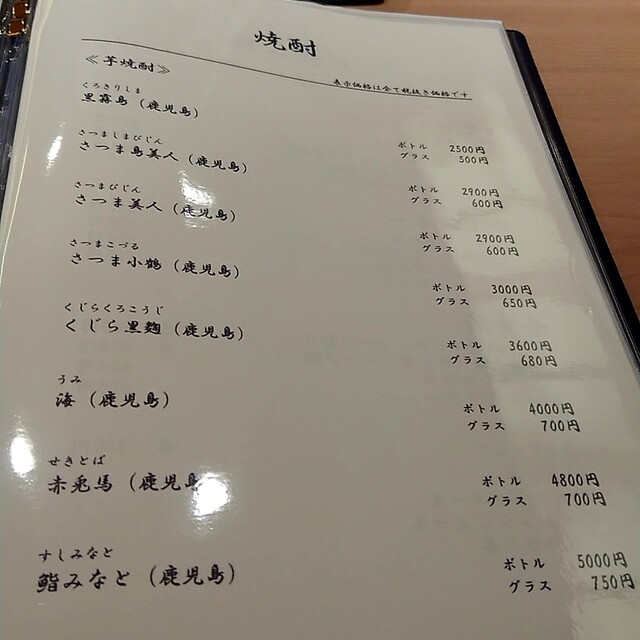 焼酎
≪芋焼酎≫
表示価格は全て税抜き価格です
くろきりしま
黒霧島（鹿児島）
ボトル 2500円
グラス 500円
さつましまびじん
さつま島美人（鹿児島）
ボトル 2900円
グラス 600円
さつまびじん
さつま美人（鹿児島）
ボトル 2900円
グラス 600円
さつまこづる
さつま小鶴（鹿児島）
ボトル 3000円
グラス 650円
くじらくろこうじ
くじら黒麹（鹿児島）
ボトル 3600円
グラス 680円
うみ
海（鹿児島）
ボトル 4000円
グラス 700円
せきとば
赤兎馬（鹿児島
ボトル 4800円
グラス 700円
すしみなと
鮨みなと（鹿児島）
ボトル 5000円
グラス 750円